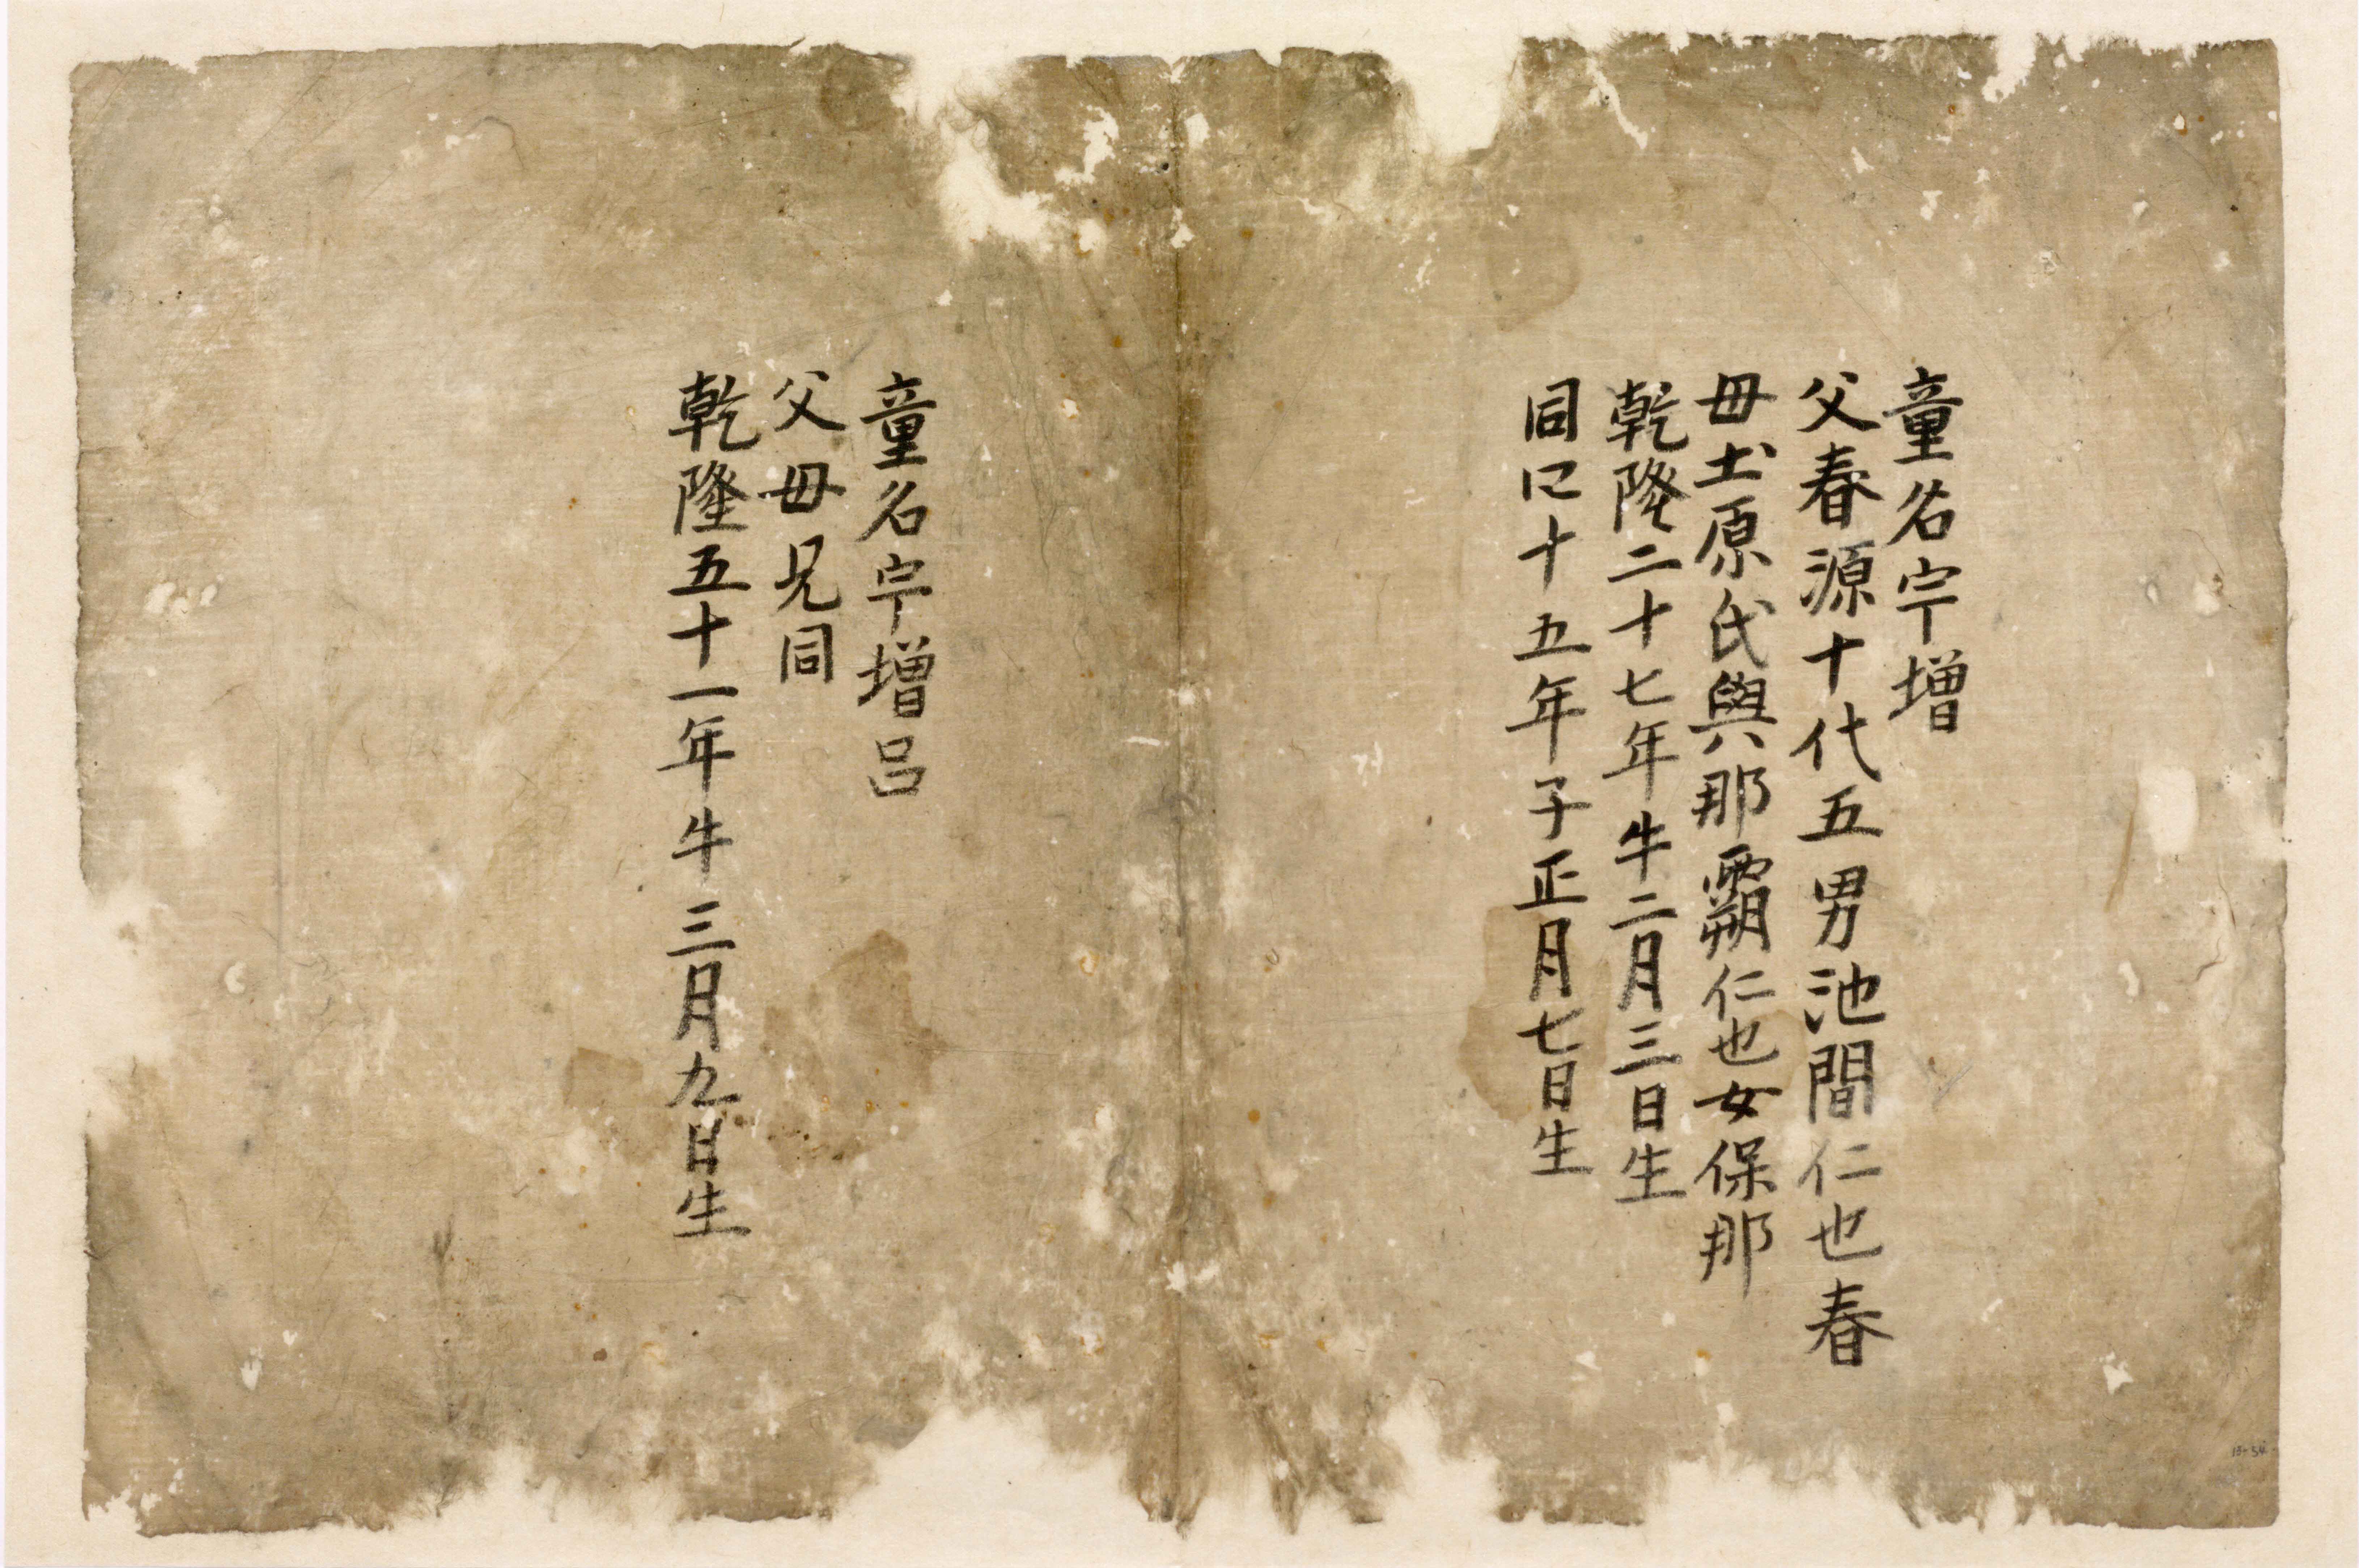 童名宇增
父春源十代五男池間仁也春
母土原氏與那覇仁也女保那
乾隆二十七年牛二月三日生
同口十五年子正月七日生
童名宇增呂
父母兄同
乾隆五十一年牛三月九日生
13-54